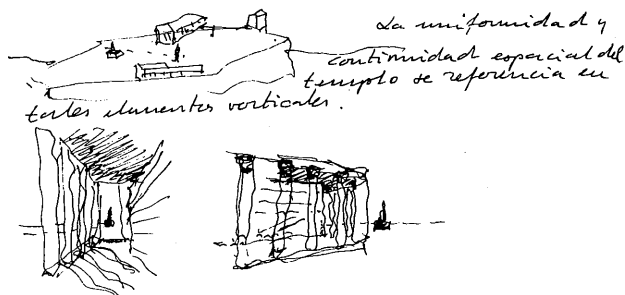 La uniformidad y
continuidad espacial del
templo se referencia en
tales elementos verticales.